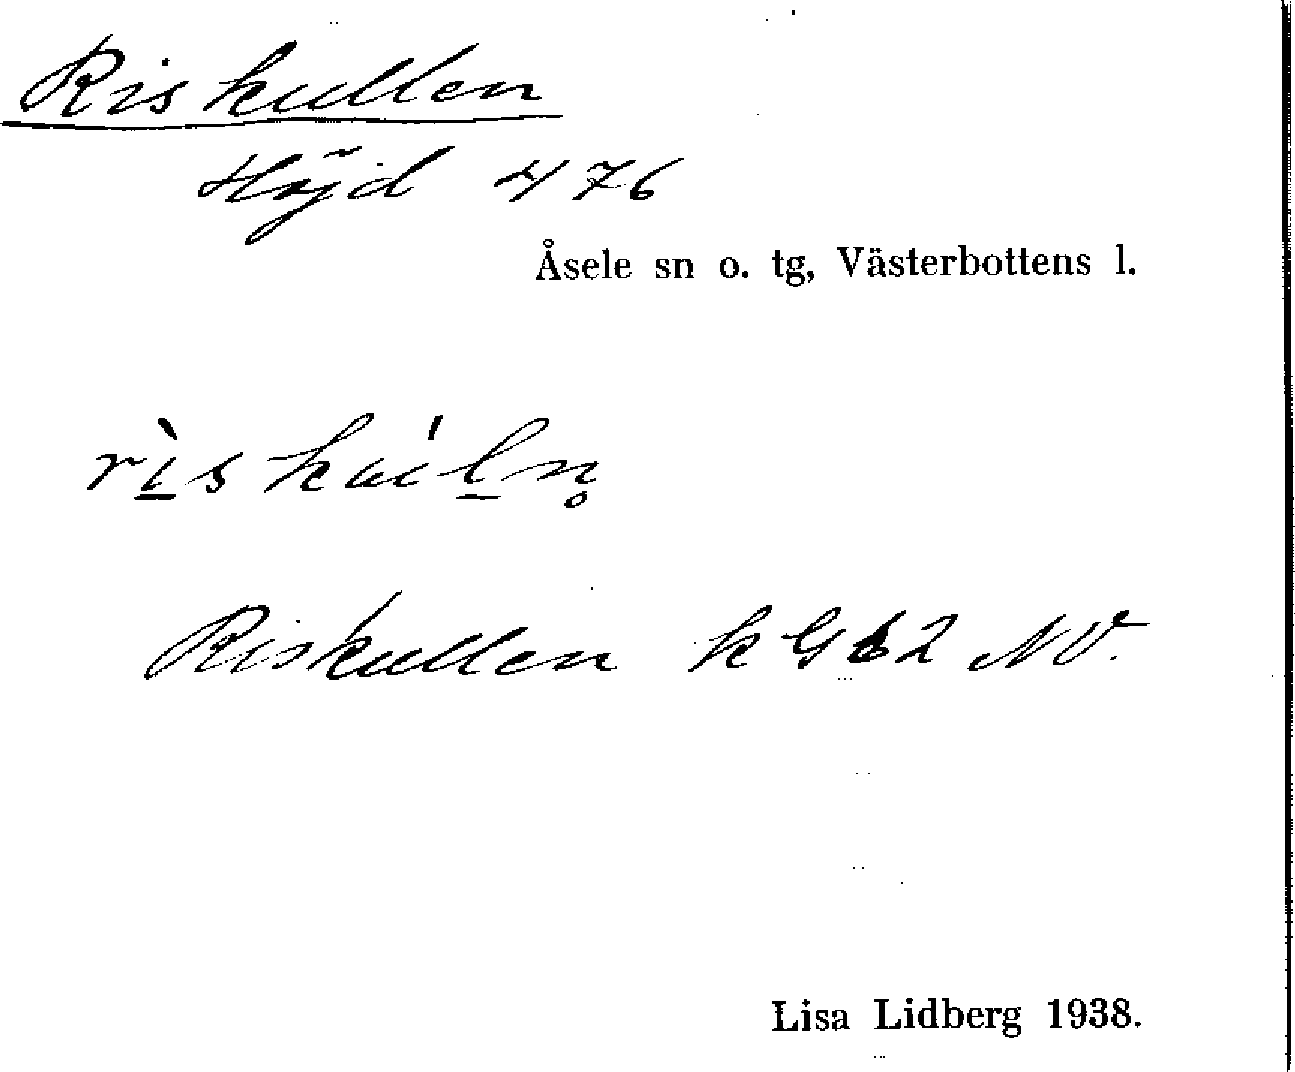 Riskullen
Höjd 476
Åsele sn o. tg, Västerbottens l.
Riskullen k G62 NV.
Lisa Lidberg 1938.